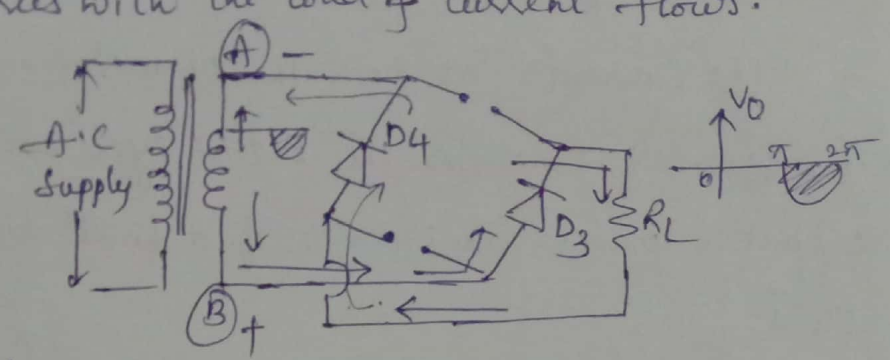 with the load & current flows.
A
-
A.C
Supply
D4
D3
RL
B
+
V0
0
π
2π